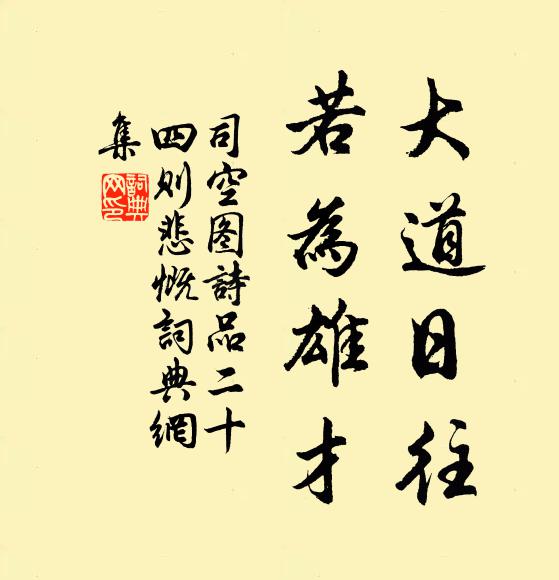 大道日往
若為雄才
司空图詩品二十
四则悲慨詞典網
集
詞典
网印